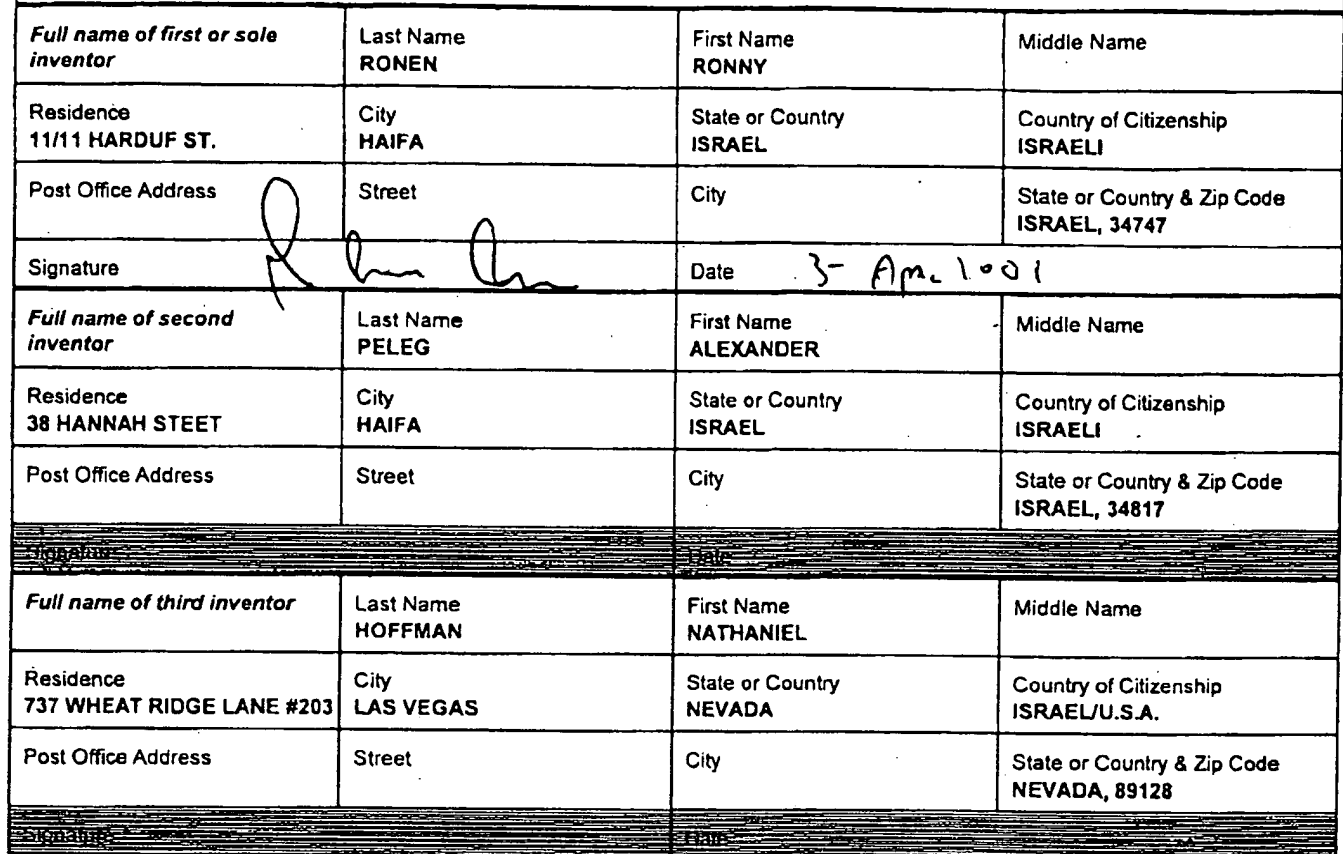 Full name of first or sole inventor Last Name RONEN First Name RONNY Middle Name
Residence 11/11 HARDUF ST. City HAIFA State or Country ISRAEL Country of Citizenship ISRAELI
Post Office Address Street City State or Country & Zip Code ISRAEL, 34747
Signature Date 3-
Full name of second inventor Last Name PELEG First Name ALEXANDER Middle Name
Residence 38 HANNAH STEET City HAIFA State or Country ISRAEL Country of Citizenship ISRAELI
Post Office Address Street City State or Country & Zip Code ISRAEL, 34817
Signature Date
Full name of third inventor Last Name HOFFMAN First Name NATHANIEL Middle Name
Residence 737 WHEAT RIDGE LANE #203 City LAS VEGAS State or Country NEVADA Country of Citizenship ISRAEL/U.S.A.
Post Office Address Street City State or Country & Zip Code NEVADA, 89128
Signature Date